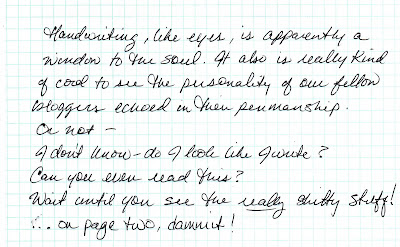 Handwriting, like eyes, is apparently a
window to the soul. It also is really kind
of cool to see the personality of our fellow
bloggers echoed in their penmanship.
Or not –
I don't know – do I look like I write?
Can you even read this?
Wait until you see the really shitty stuff!
... on page two, dammit!